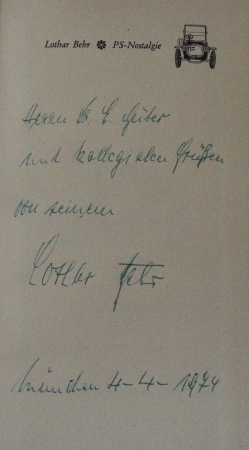 Lothar Behr ❁ PS-Nostalgie
Herrn Dr. E. Huber
mit kollegialen Grüßen
von seinem
Lothar Behr
München 4-4-1974